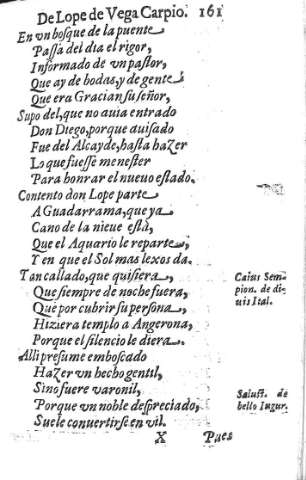 De Lope de Vega Carpio. 161
En vn bosque de la puente
Passa del dia el rigor,
Informado de vn pastor,
Que ay de bodas, y de gente
Que era Gracian su señor,
Supo del, que no auia entrado
Don Diego, porque auisado
Fue del Alcayde, hasta hazer
Lo que fuesse menester
Para honrar el nueuo estado.
Contento don Lope parte
A Guadarrama, que ya
Cano de la nieue està,
Que el Aquario le reparte,
Y en que el Sol mas lexos da.
Tan callado, que quisiera,
Que siempre de noche fuera,
Que por cubrir su persona,
Hiziera templo a Angerona,
Porque el silencio le diera.
Alli presume emboscado
Hazer vn hecho gentil,
Si no fuere varonil,
Porque vn noble despreciado,
Suele conuertirse en vil.
Caius Sem-
pion. de di-
uis Ital.
Salust. de
bello Iugur.
X Pues